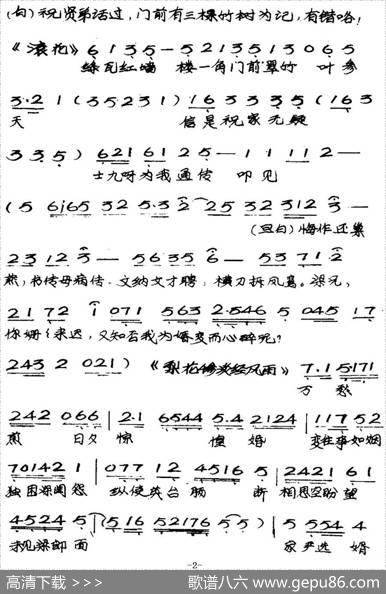 (白) 祝贤弟话过，门前有三棵竹树为记，有错咯！
《滚花》 6 1 3 5 — 5 2 1 3 5 1 3 0 6 5
绿瓦红墙 楼一角门前翠竹 叶参
3·2 1 ( 3 5 2 3 1 ) 1 6 3 3 3 5 ( 1 6 3
天 信是祝家无疑
3 3 5 ) 6 2 1 6 1 2 5 — 1 1 1 1 2 —
士九呀为我通传 叩见
( 5 6 i 6 5 3 2 5·3 2 — 2 5 3 2 3 1 2 3 —
(旦白) 悔作
2 3 1 2 3 — 5 6 3 5 6 — 5 3 7 1 2
书传母病传，文纳文才聘，横刀拆凤鸾。梁兄，
2 1 7 2 i 0 7 1 5 6 3 2·5 4 6 5 0 4 5 1 7
你姗姗来迟，又知否我为婚变而心碎呢？
2 4 3 2 0 2 1 ) 《梨花惨淡经风雨》 7·1 5 1 7 1
万 愁
2 4 2 0 6 6 | 2·1 6 5 4 4 5·4 2 1 2 4 | 1 1 7 5 2
煎 日夕 惊 惶 婚 变往事如烟
7 0 1 4 2 1 | 0 7 7 1 2 4 5 1 6 5 | 2 4 2 1 6 1
独困深闺怨 纵使英台肠 断 相思空盼望
4 5 2 4 5 ( 5 1 6 5 2 1 7 6 5 5 ) | 5 5 5 4 4
求见梁郎面 家严选 婿
-2-
高清下载 >>> 歌谱八六 www.gepu86.com